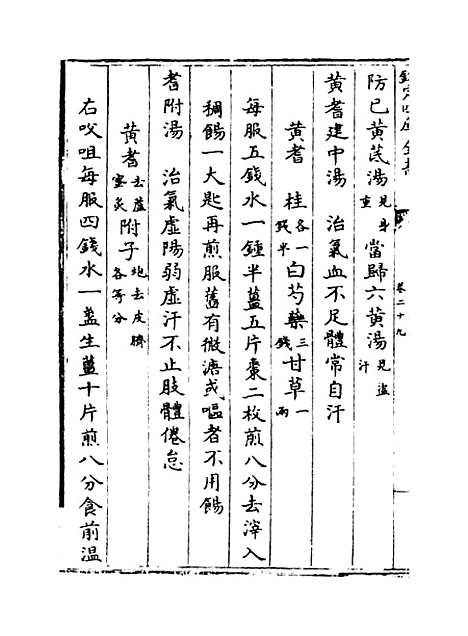 欽定四庫全書
卷二十九
防已黄芪湯見身重 當歸六黄湯見盜汗
黄耆建中湯 治氣血不足體常自汗
黄耆 桂各一錢半 白芍藥三錢 甘草一兩
每服五錢水一鍾半薑五片棗二枚煎八分去滓入
稠餳一大匙再煎服舊有微溏或嘔者不用餳
耆附湯 治氣虛陽弱虛汗不止肢體倦怠
黄耆去蘆蜜炙 附子炮去皮臍各等分
右㕮咀每服四錢水一盞生薑十片煎八分食前温